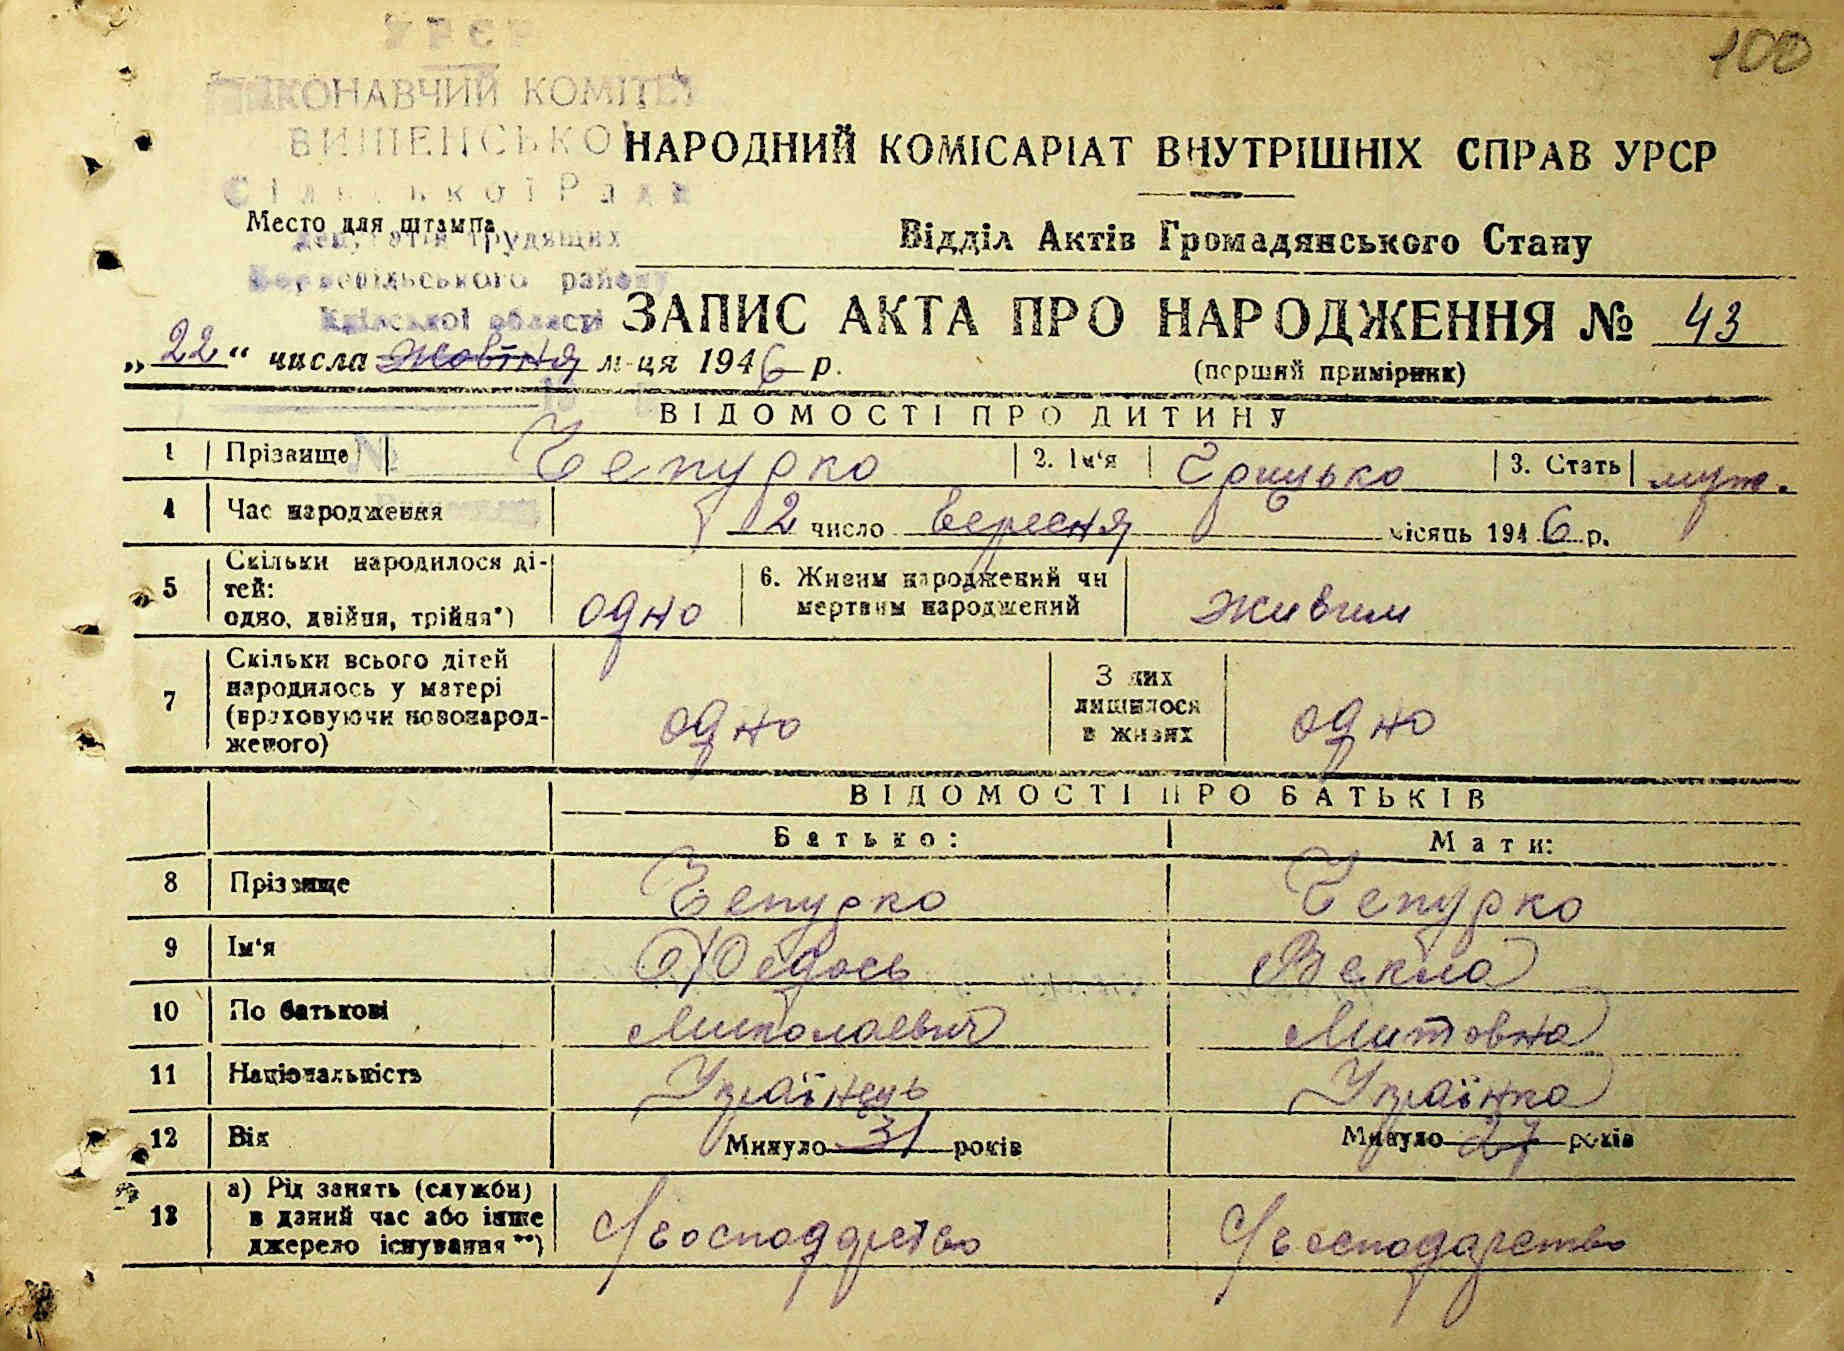 100
УРСР
ВИКОНАВЧИЙ КОМІТЕТ
ВИШЕНСЬКОЇ
Сільської Ради
НАРОДНИЙ КОМІСАРІАТ ВНУТРІШНІХ СПРАВ УРСР
Место для штампа
депутатів трудящих
Відділ Актів Громадянського Стану
Бориспільського району
Київської області
ЗАПИС АКТА ПРО НАРОДЖЕННЯ № 43
„22“ числа жовтня м-ця 1946 р.
(перший примірник)
ВІДОМОСТІ ПРО ДИТИНУ
№
1 Прізвище Чепурко 2. Ім'я Грицько 3. Стать муж.
4 Час народження 2 число вересня місяць 1946 р.
5 Скільки народилося ді-
тей:
одно, двійня, трійня*) одно 6. Живим народжений чи
мертвим народжений живим
7 Скільки всього дітей
народилось у матері
(враховуючи новонарод-
женого) одно З них
лишилося
в живих одно
ВІДОМОСТІ ПРО БАТЬКІВ
Батько: Мати:
8 Прізвище Чепурко Чепурко
9 Ім'я Федось Векла
10 По батькові Миколаевич Митовна
11 Національність Українець Українка
12 Вік Минуло 31 років Минуло 27 років
13 а) Рід занять (служби)
в даний час або інше
джерело існування**)